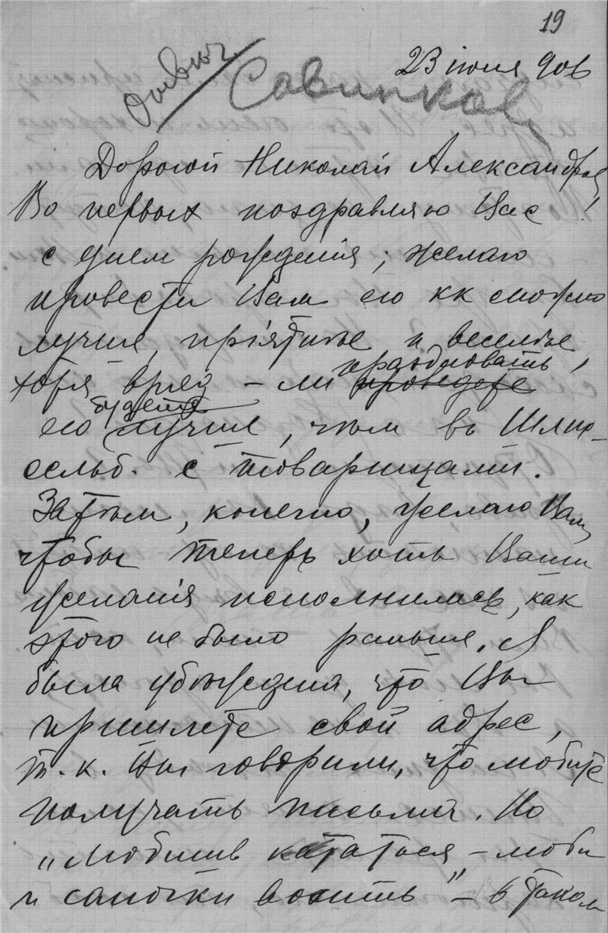 19
23 июля 906
Савинков
Дорогой Николай Александров,
Во первых поздравляю Вас
с днем рожденія; желаю
провести Вам его кк можно
лучше, пріятнѣе и веселѣе,
хотя вряд-ли праздновать
проведете
его будете
лучше, чѣм въ Шлис-
сельб. с товарищами.
Затѣм, конечно, желаю Вам,
чтобы теперь хоть Ваши
желанія исполнились, как
этого не было раньше. Я
была убѣждена, что Вы
пришлете свой адрес,
т. к. Вы говорили, что любите
получать письма. Но
„любишь кататься, – люби
и саночки возить" – в таком